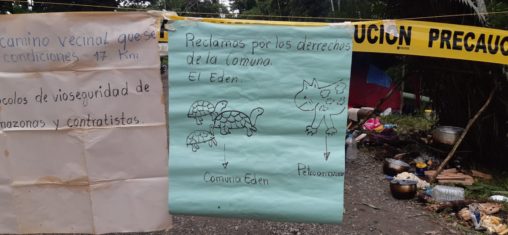 camino vecinal que se
condiciones 17 Km
colos de vioseguridad de
mazonas y contratistas.
Reclamos por los derechos
de la comuna.
El Eden.
Comuna Eden
UCIÓN PRECAUC